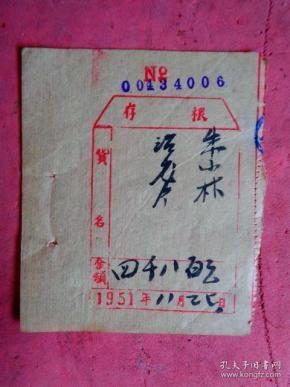 №
00134006
存根
朱小林
貨名
金額
四千八百
1951年11月25日
孔夫子旧书网